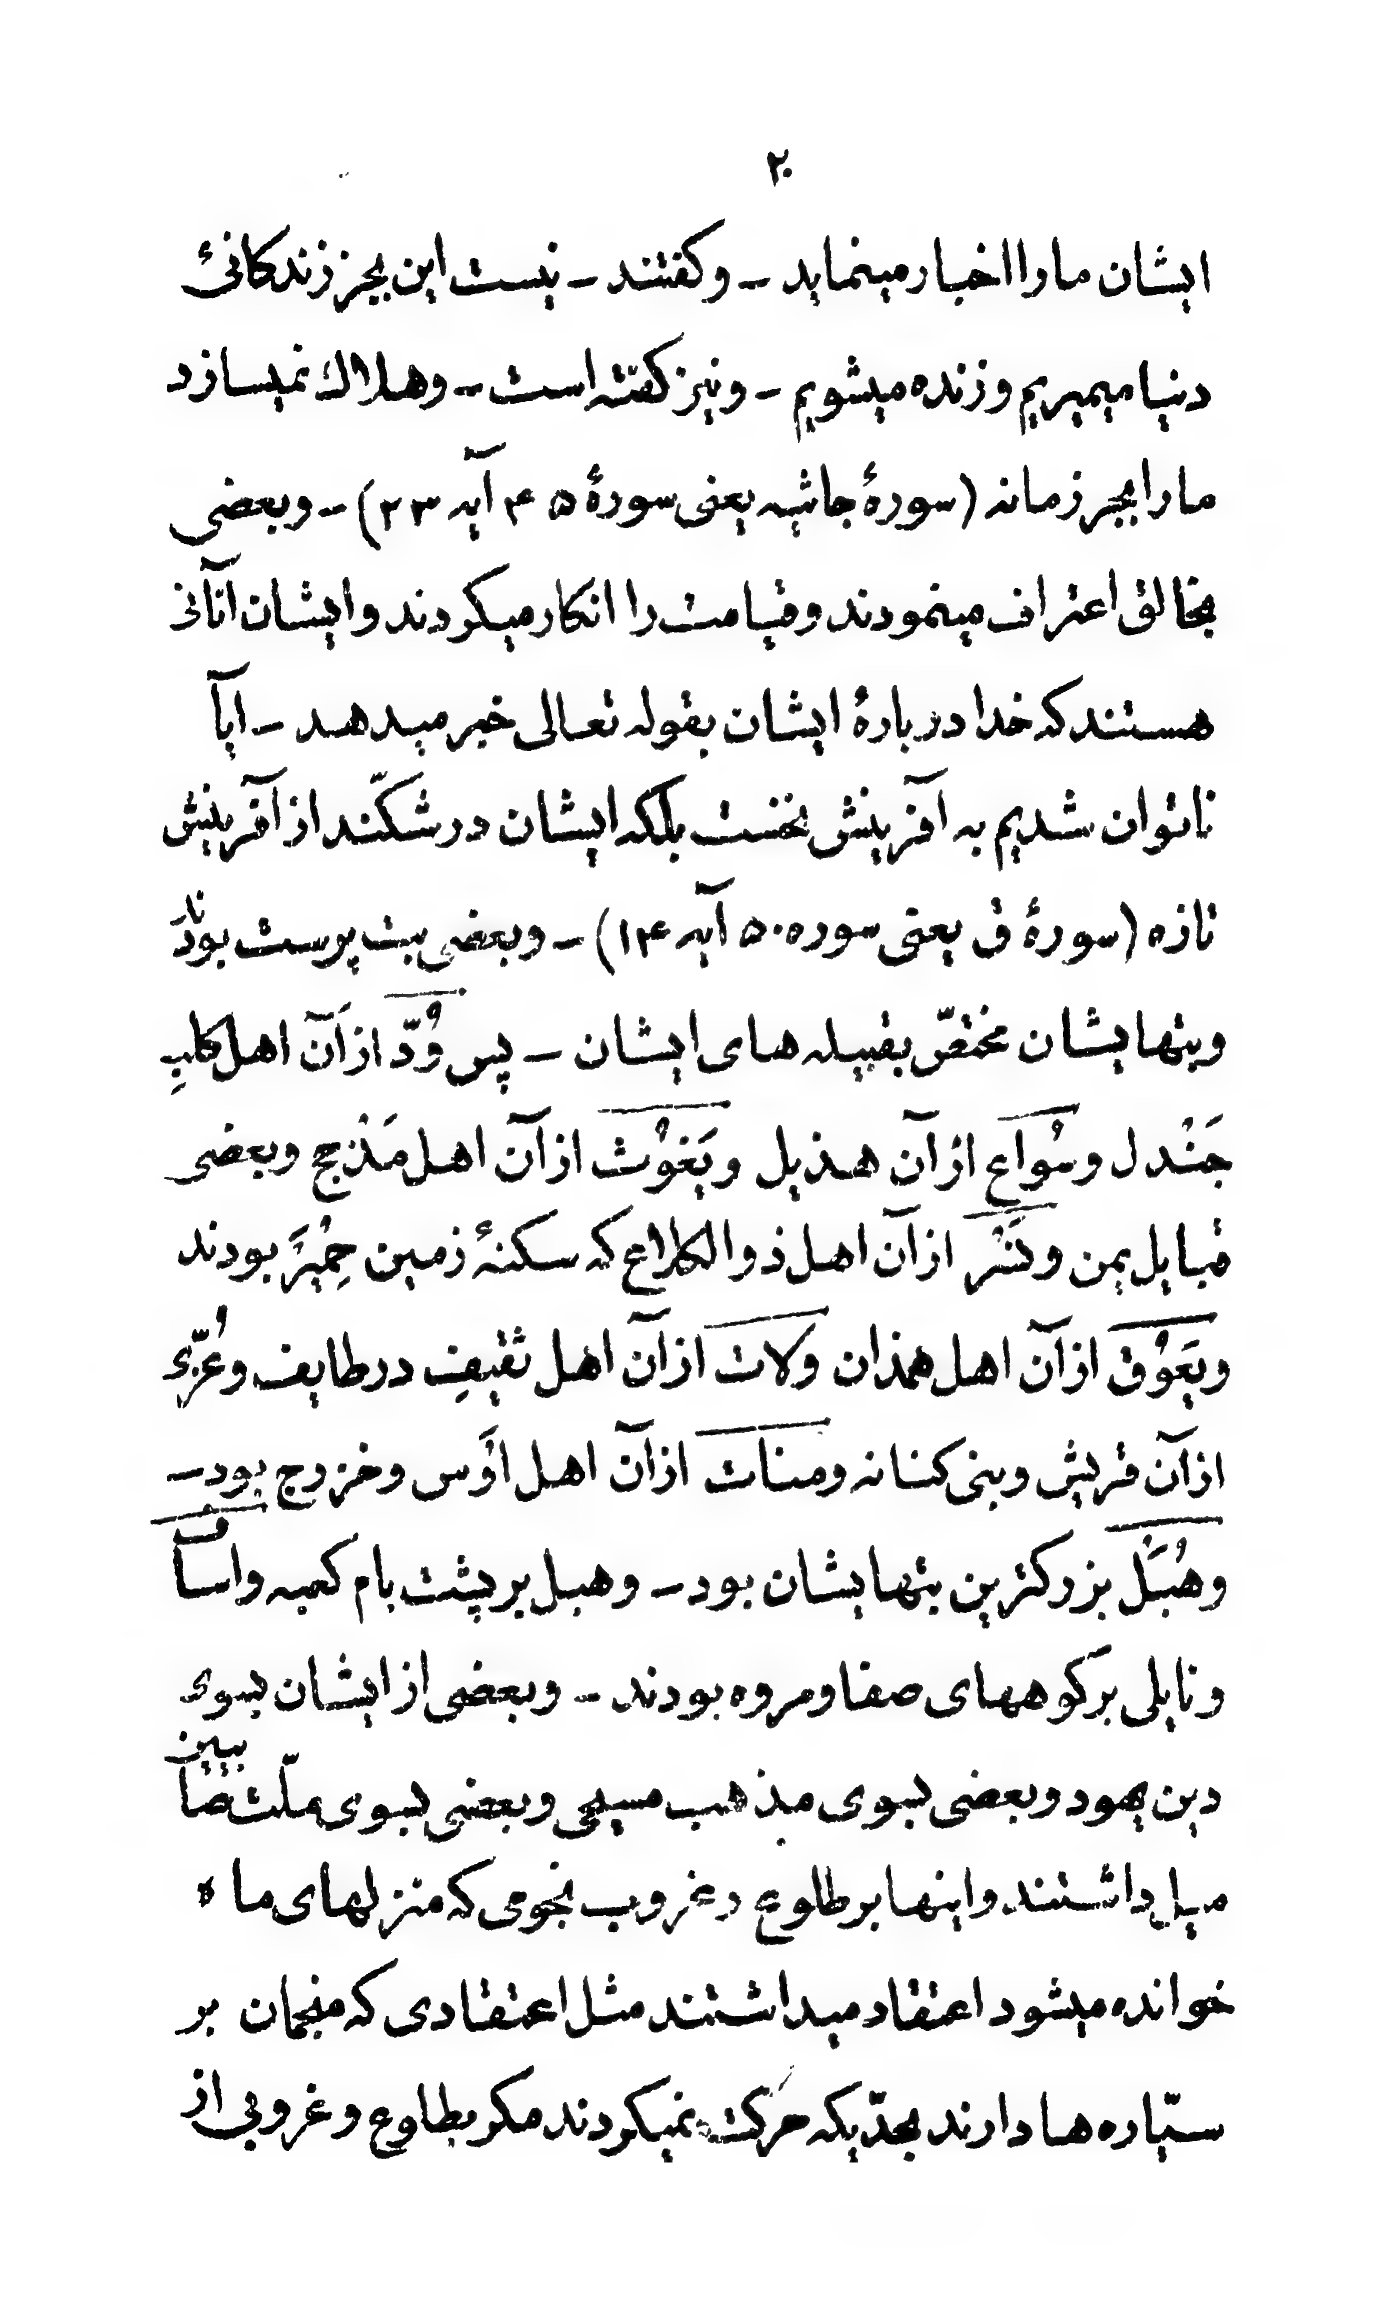 ۲۰
ایشان ما را اخبار مینماید ـ وکفتند ـ نیست این بجز زندکانیٔ
دنیا میمیریم وزنده میشویم ـ ونیز کفته است ـ وهلاك نمیسازد
مارا بجر زمانه (سورهٔ جاثیه یعنی سورهٔ ۴۵ آیه ۲۳) ـ وبعضی
بخالق اعتراف مینمودند وقیامت را انکار میکردند وایشان آنانی
هستند که خدا دربارهٔ ایشان بقوله تعالی خبر میدهد ـ ایآ
ناتوان شدیم به آفرینش نخست بلکه ایشان در شکّند از آفرینش
تازه (سورهٔ ق یعنی سوره ۵۰ آیه ۱۴) ـ وبعضی بت پرست بودند
وبتهایشان مختصّ بقبیله های ایشان ـ پس وُدّ از آن اهل کلبِ
جَنْدل وسُواع از آن هذیل ویَغوْث از آن اهل مَذْحج وبعضی
قبایل یمن ونَسْر از آن اهل ذوالکلاع که سکنهٔ زمین حِمْیَر بودند
ویَعَوْق از آن اهل همذان ولات از آن اهل ثقیفِ در طایف وعُزّی
از آن قریش وبنی کنانه ومنات از آن اهل اَوس وخزرج بود ـ
وهُبَل بزرکترین بتهایشان بود ـ وهبل بر پشت بام کعبه واساف
ونایلی بر کوههای صفا ومروه بودند ـ وبعضی از ایشان بسوی
دین یهود وبعضی بسوی مذهب مسیحی وبعضی بسوی ملّت صابیین
میل داشتند واینها بر طلوع وغروب نجومی که منزلهای ماه
خوانده میشود اعتقاد میداشتند مثل اعتقادی که منجمان بر
سیّاره ها دارند بحدّیکه حرکت نمیکردند مکر بطلوع وغروبی از